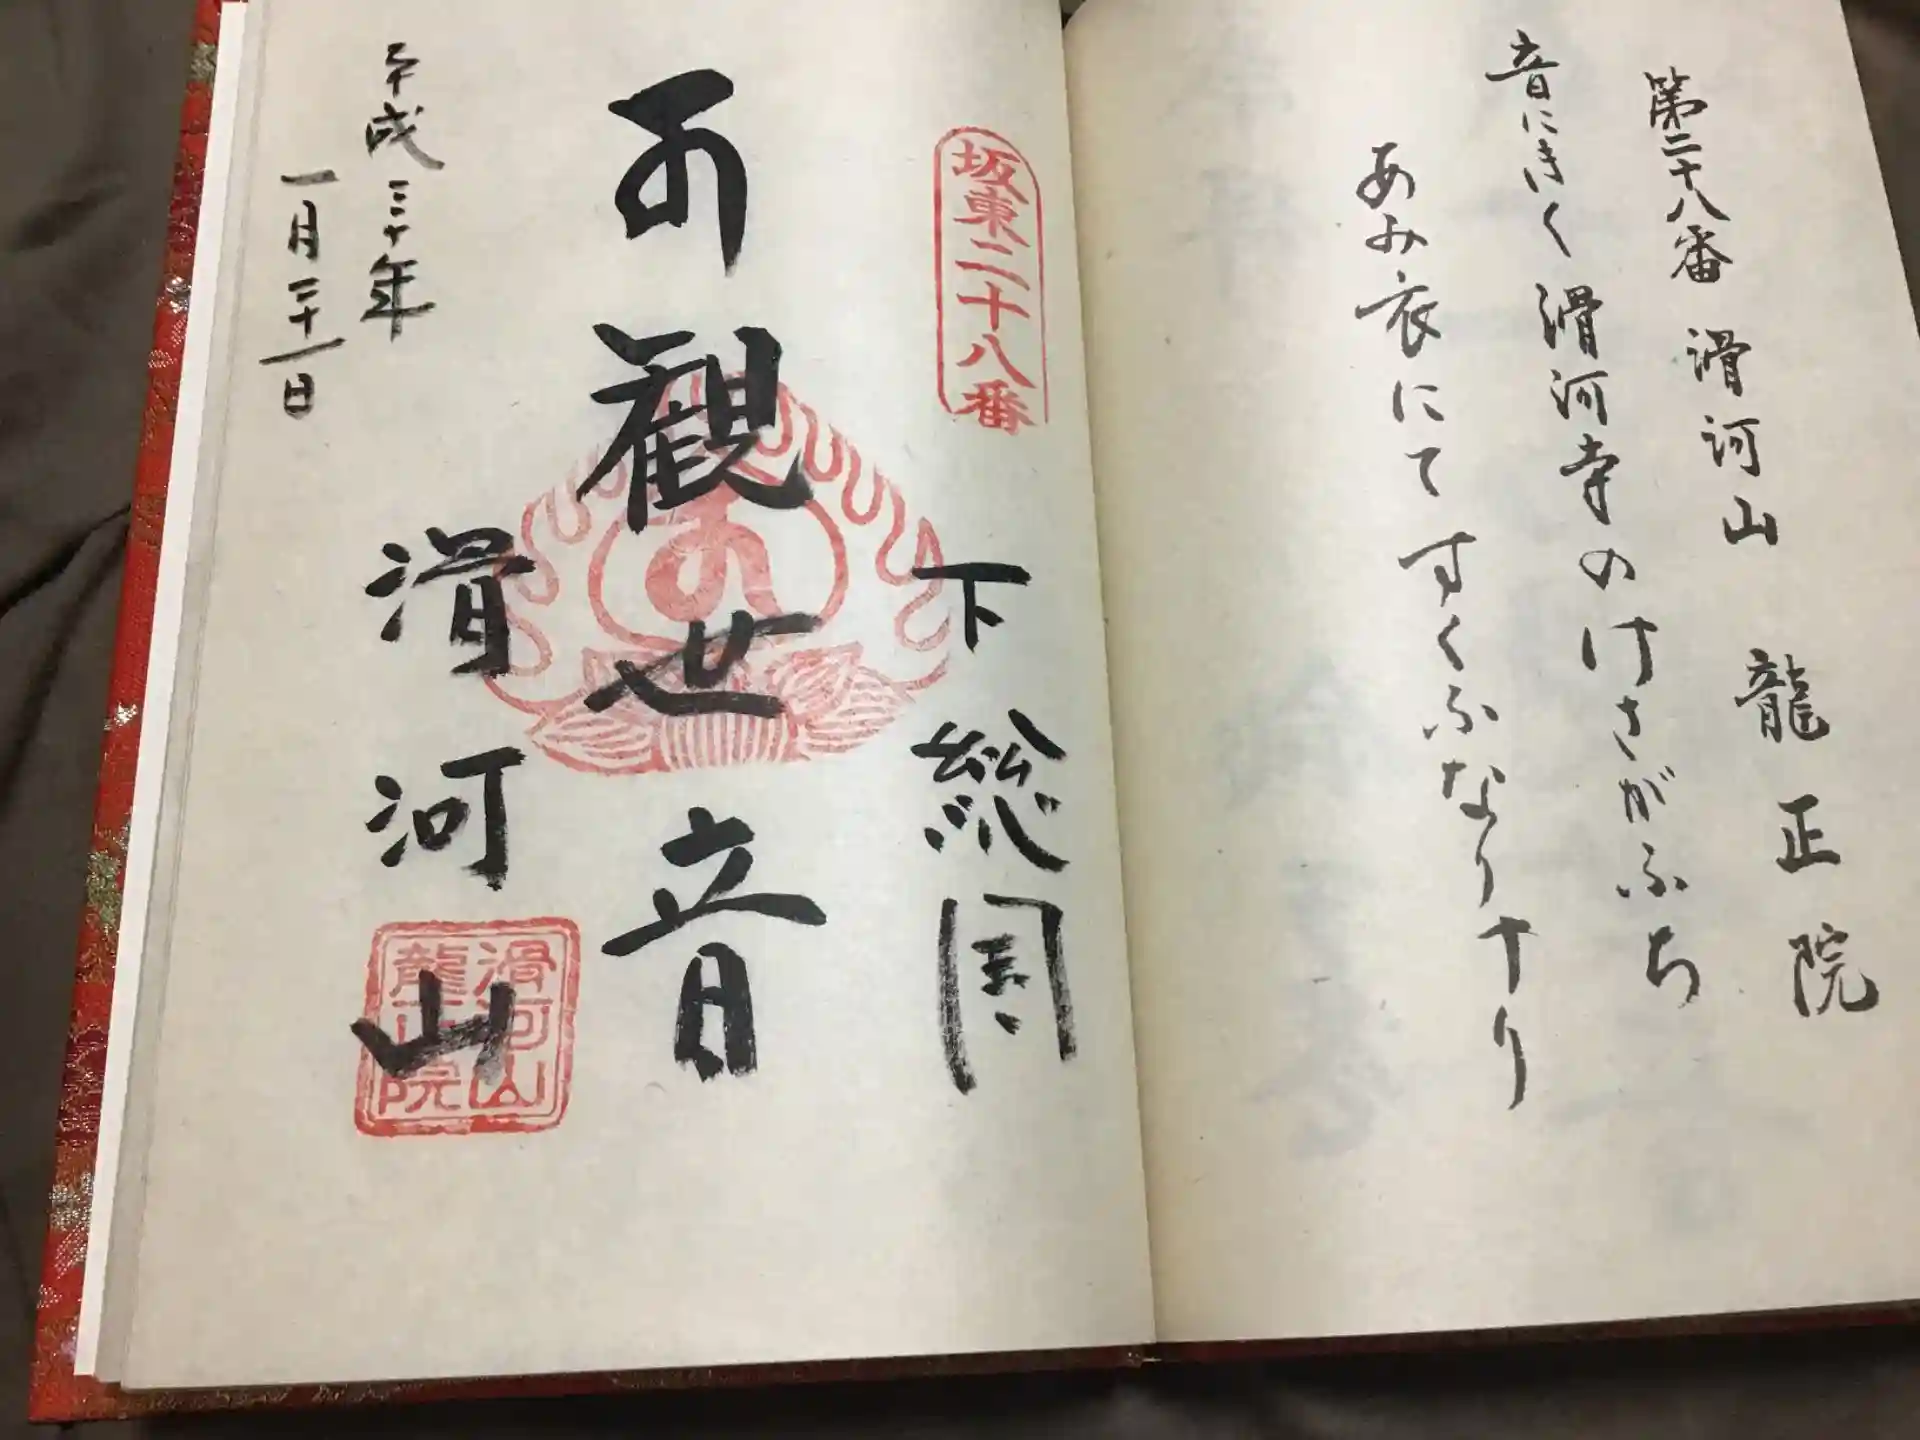 第二十八番 滑河山 龍正院
音にきく滑河寺のけさがふち
あみ衣にてすくふなりけり
坂東二十八番
下総国
観世音
滑河山
滑河山
龍正院
平成三十年
一月二十一日